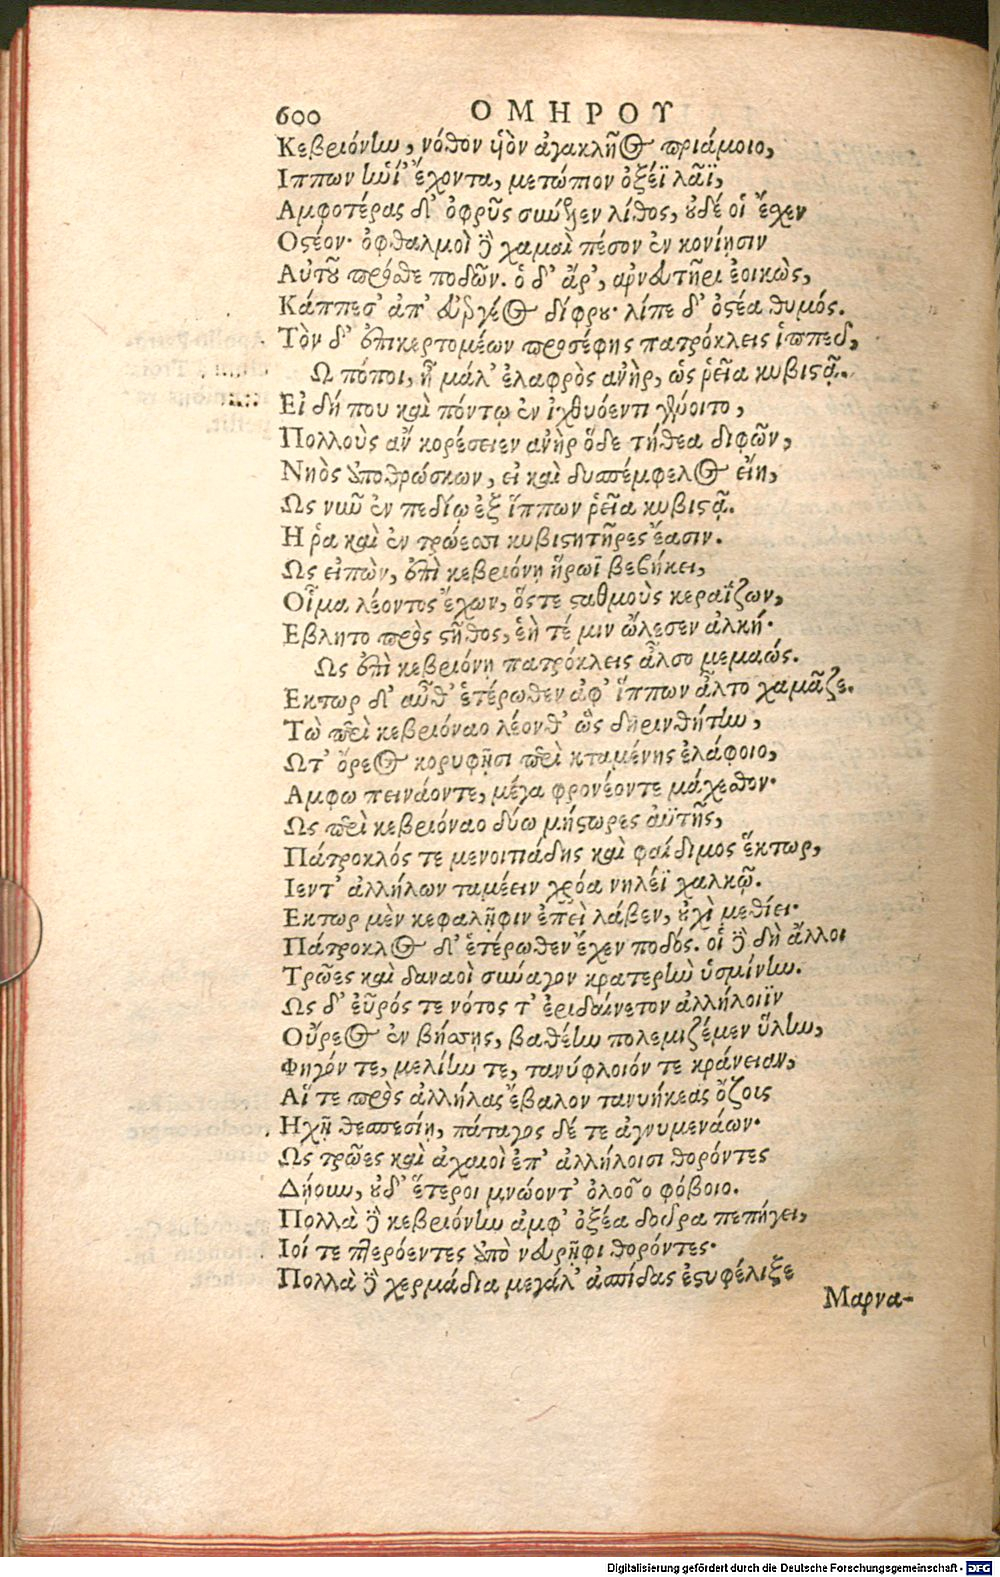 600 ΟΜΗΡΟΥ
Κεβριόνην, νόθον υἱὸν ἀγακλῆος πριάμοιο,
Ιππων ἡνί' ἔχοντα, μετώπιον ὀξέϊ λᾶϊ,
Αμφοτέρας δ' ὀφρῦς σύνελεν λίθος, οὐδέ οἱ ἔχεν
Οστέον· ὀφθαλμοὶ δὲ χαμαὶ πέσον ἐν κονίῃσιν
Αὐτοῦ πρόσθε ποδῶν. ὁ δ' ἄρ', ἀρνευτῆρι ἐοικὼς,
Κάππεσ' ἀπ' εὐεργέος δίφρου· λίπε δ' ὀστέα θυμός.
Τὸν δ' ἐπικερτομέων προσέφης πατρόκλεις ἱππεῦ,
Ω πόποι, ἦ μάλ' ἐλαφρὸς ἀνὴρ, ὡς ῥεῖα κυβιστᾷ.
Εἰ δή που καὶ πόντῳ ἐν ἰχθυόεντι γένοιτο,
Πολλοὺς ἂν κορέσειεν ἀνὴρ ὅδε τήθεα διφῶν,
Νηὸς ἀποθρώσκων, εἰ καὶ δυσπέμφελος εἴη,
Ως νῦν ἐν πεδίῳ ἐξ ἵππων ῥεῖα κυβιστᾷ.
Η ῥα καὶ ἐν τρώεσσι κυβιστητῆρες ἔασιν.
Ως εἰπὼν, ἐπὶ κεβριόνῃ ἥρωϊ βεβήκει,
Οἶμα λέοντος ἔχων, ὅστε σταθμοὺς κεραΐζων,
Εβλητο πρὸς στῆθος, ἑή τέ μιν ὤλεσεν ἀλκή·
Ως ἐπὶ κεβριόνῃ πατρόκλεις ἆλσο μεμαώς.
Εκτωρ δ' αὖθ' ἑτέρωθεν ἀφ' ἵππων ἆλτο χαμᾶζε.
Τὼ περὶ κεβριόναο λέονθ' ὣς δηρινθήτην,
Ωτ' ὄρεος κορυφῇσι περὶ κταμένης ἐλάφοιο,
Αμφω πεινάοντε, μέγα φρονέοντε μάχεσθον·
Ως περὶ κεβριόναο δύω μήστωρες ἀϋτῆς,
Πάτροκλός τε μενοιτιάδης καὶ φαίδιμος ἕκτωρ,
Ιεντ' ἀλλήλων ταμέειν χρόα νηλέϊ χαλκῷ.
Εκτωρ μὲν κεφαλῆφιν ἐπεὶ λάβεν, οὐχὶ μεθίει·
Πάτροκλος δ' ἑτέρωθεν ἔχεν ποδός. οἱ δὲ δὴ ἄλλοι
Τρῶες καὶ δαναοὶ σύναγον κρατερὴν ὑσμίνην.
Ως δ' εὖρός τε νότος τ' ἐριδαίνετον ἀλλήλοιϊν
Οὔρεος ἐν βήσσῃς, βαθέην πολεμιζέμεν ὕλην,
Φηγόν τε, μελίην τε, τανύφλοιόν τε κράνειαν,
Αἵ τε πρὸς ἀλλήλας ἔβαλον τανυήκεας ὄζοις
Ηχῇ θεσπεσίῃ, πάταγος δέ τε ἀγνυμενάων·
Ως τρῶες καὶ ἀχαιοὶ ἐπ' ἀλλήλοισι θορόντες
Δῄουν, οὐδ' ἕτεροι μνώοντ' ὀλοοῖο φόβοιο.
Πολλὰ δὲ κεβριόνην ἀμφ' ὀξέα δοῦρα πεπήγει,
Ιοί τε πτερόεντες ἀπὸ νευρῆφι θορόντες·
Πολλὰ δὲ χερμάδια μεγάλ' ἀσπίδας ἐστυφέλιξε
Μαρνα-
Digitalisierung gefördert durch die Deutsche Forschungsgemeinschaft - DFG